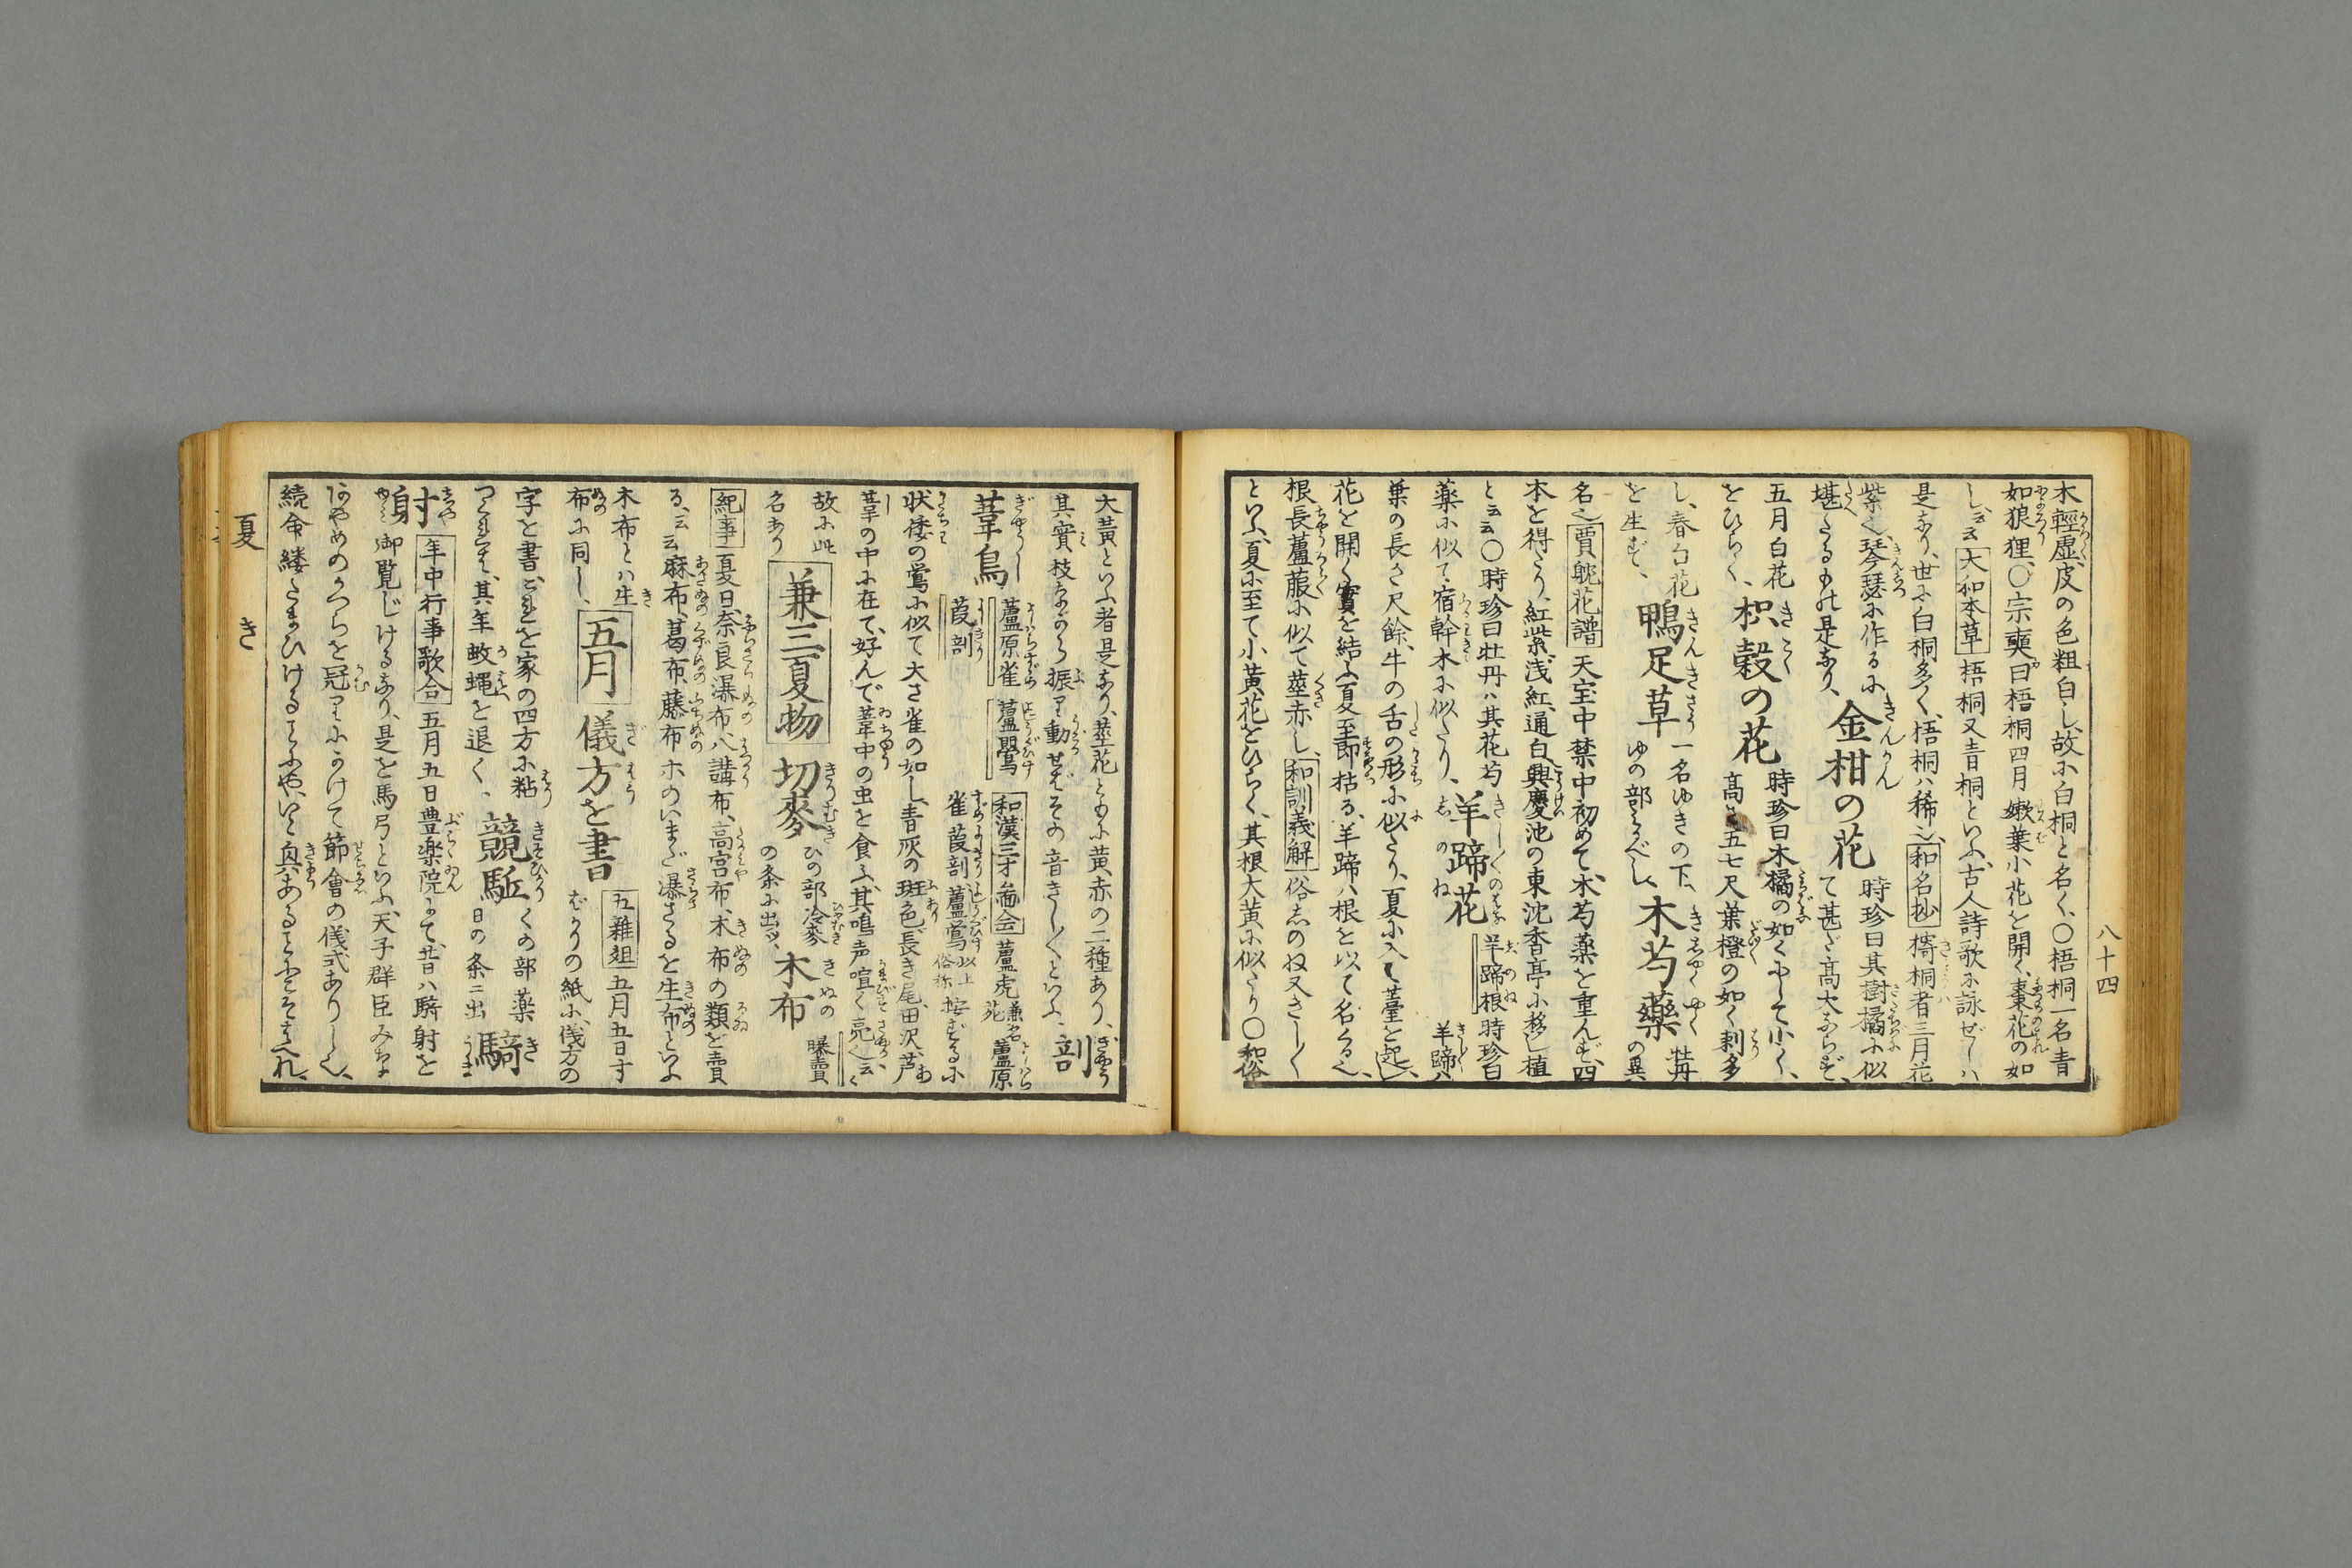 八十四
木輕虚、皮の色粗白し、故に白桐と名く、〇梧桐一名青
如狼狸、〇宗奭曰梧桐四月嫩葉小花を開く、棗花の如
し、云云 大和本草 梧桐又青桐といふ、古人詩歌に詠ぜしハ
是なり、世に白桐多く、梧桐ハ稀也、和名抄 椅桐者三月花
紫也、琴瑟に作るに 金柑の花 時珍曰其樹橘に似
堪たるもの是なり、 て甚だ高大ならず、
五月白花 枳殻の花 時珍曰木橘の如くにして小く、
をひらく、 高さ五七尺葉橙の如く刺多
し、春白花 鴨足草 一名ゆきの下、 木芍藥 牡丹
を生ず、 ゆの部 の異
名也 賈耽花譜 天宝中禁中初めて、木芍薬を重んず、四
本を得たり、紅紫、浅紅、通白、興慶池の東沈香亭に移し植
と云云〇時珍曰牡丹ハ其花芍 羊蹄花 羊蹄根 時珍曰
藥に似て、宿幹木に似たり、 しのね 羊蹄ハ
葉の長さ尺餘、牛の舌の形に似たり、夏に入て薹を起し、
花を開く實を結ふ夏至即枯る、羊蹄ハ根を以て名くる也、
根長蘆菔に似て莖赤し、和訓義解 俗しのね又きし〱
といふ、夏に至て小黄花をひらく、其根大黄に似たり〇和俗
大黄といふ者是なり、莖花ともに黄赤の二種あり、
其實枝ながら振り動せばその音きし〱といふ、 剖
葦鳥 蘆原雀 蘆鶯 和漢三才圖会 蘆虎 蘆原
葭剖 雀 葭剖 蘆鶯 以上俗称 按ずるに
状倭の鶯に似て大さ雀の如し、青灰の斑色、長き尾、田沢、芦
葦の中に在て、好んで葦中の虫を食ふ、其鳴声喧く亮〱云云
故に此 兼三夏物 切麥 ひの部冷麥 木布 曝賣
名あり の条に出ス、
紀事 夏日奈良瀑布、八講布、高宮布、木布の類を賣
る、云云 麻布、葛布、藤布ホのいまだ瀑さるを生布といふ
木布とハ生 五月 儀方を書 五雜俎 五月五日寸
布に同し、 ばかりの紙に、儀方の
字を書、これを家の四方に粘 競駈 くの部薬 騎
つくれば、其年蚊蠅を退く、 日の条ニ出
射 年中行事歌合 五月五日豊楽院にて、昔ハ騎射を
御覧じけるなり、是を馬弓といふ、天子群臣みな
あやめのかつらを冠りにかけて節會の儀式ありし也、
続命縷たまひけることにや、いと興あることにこそ侍れ、
夏 き